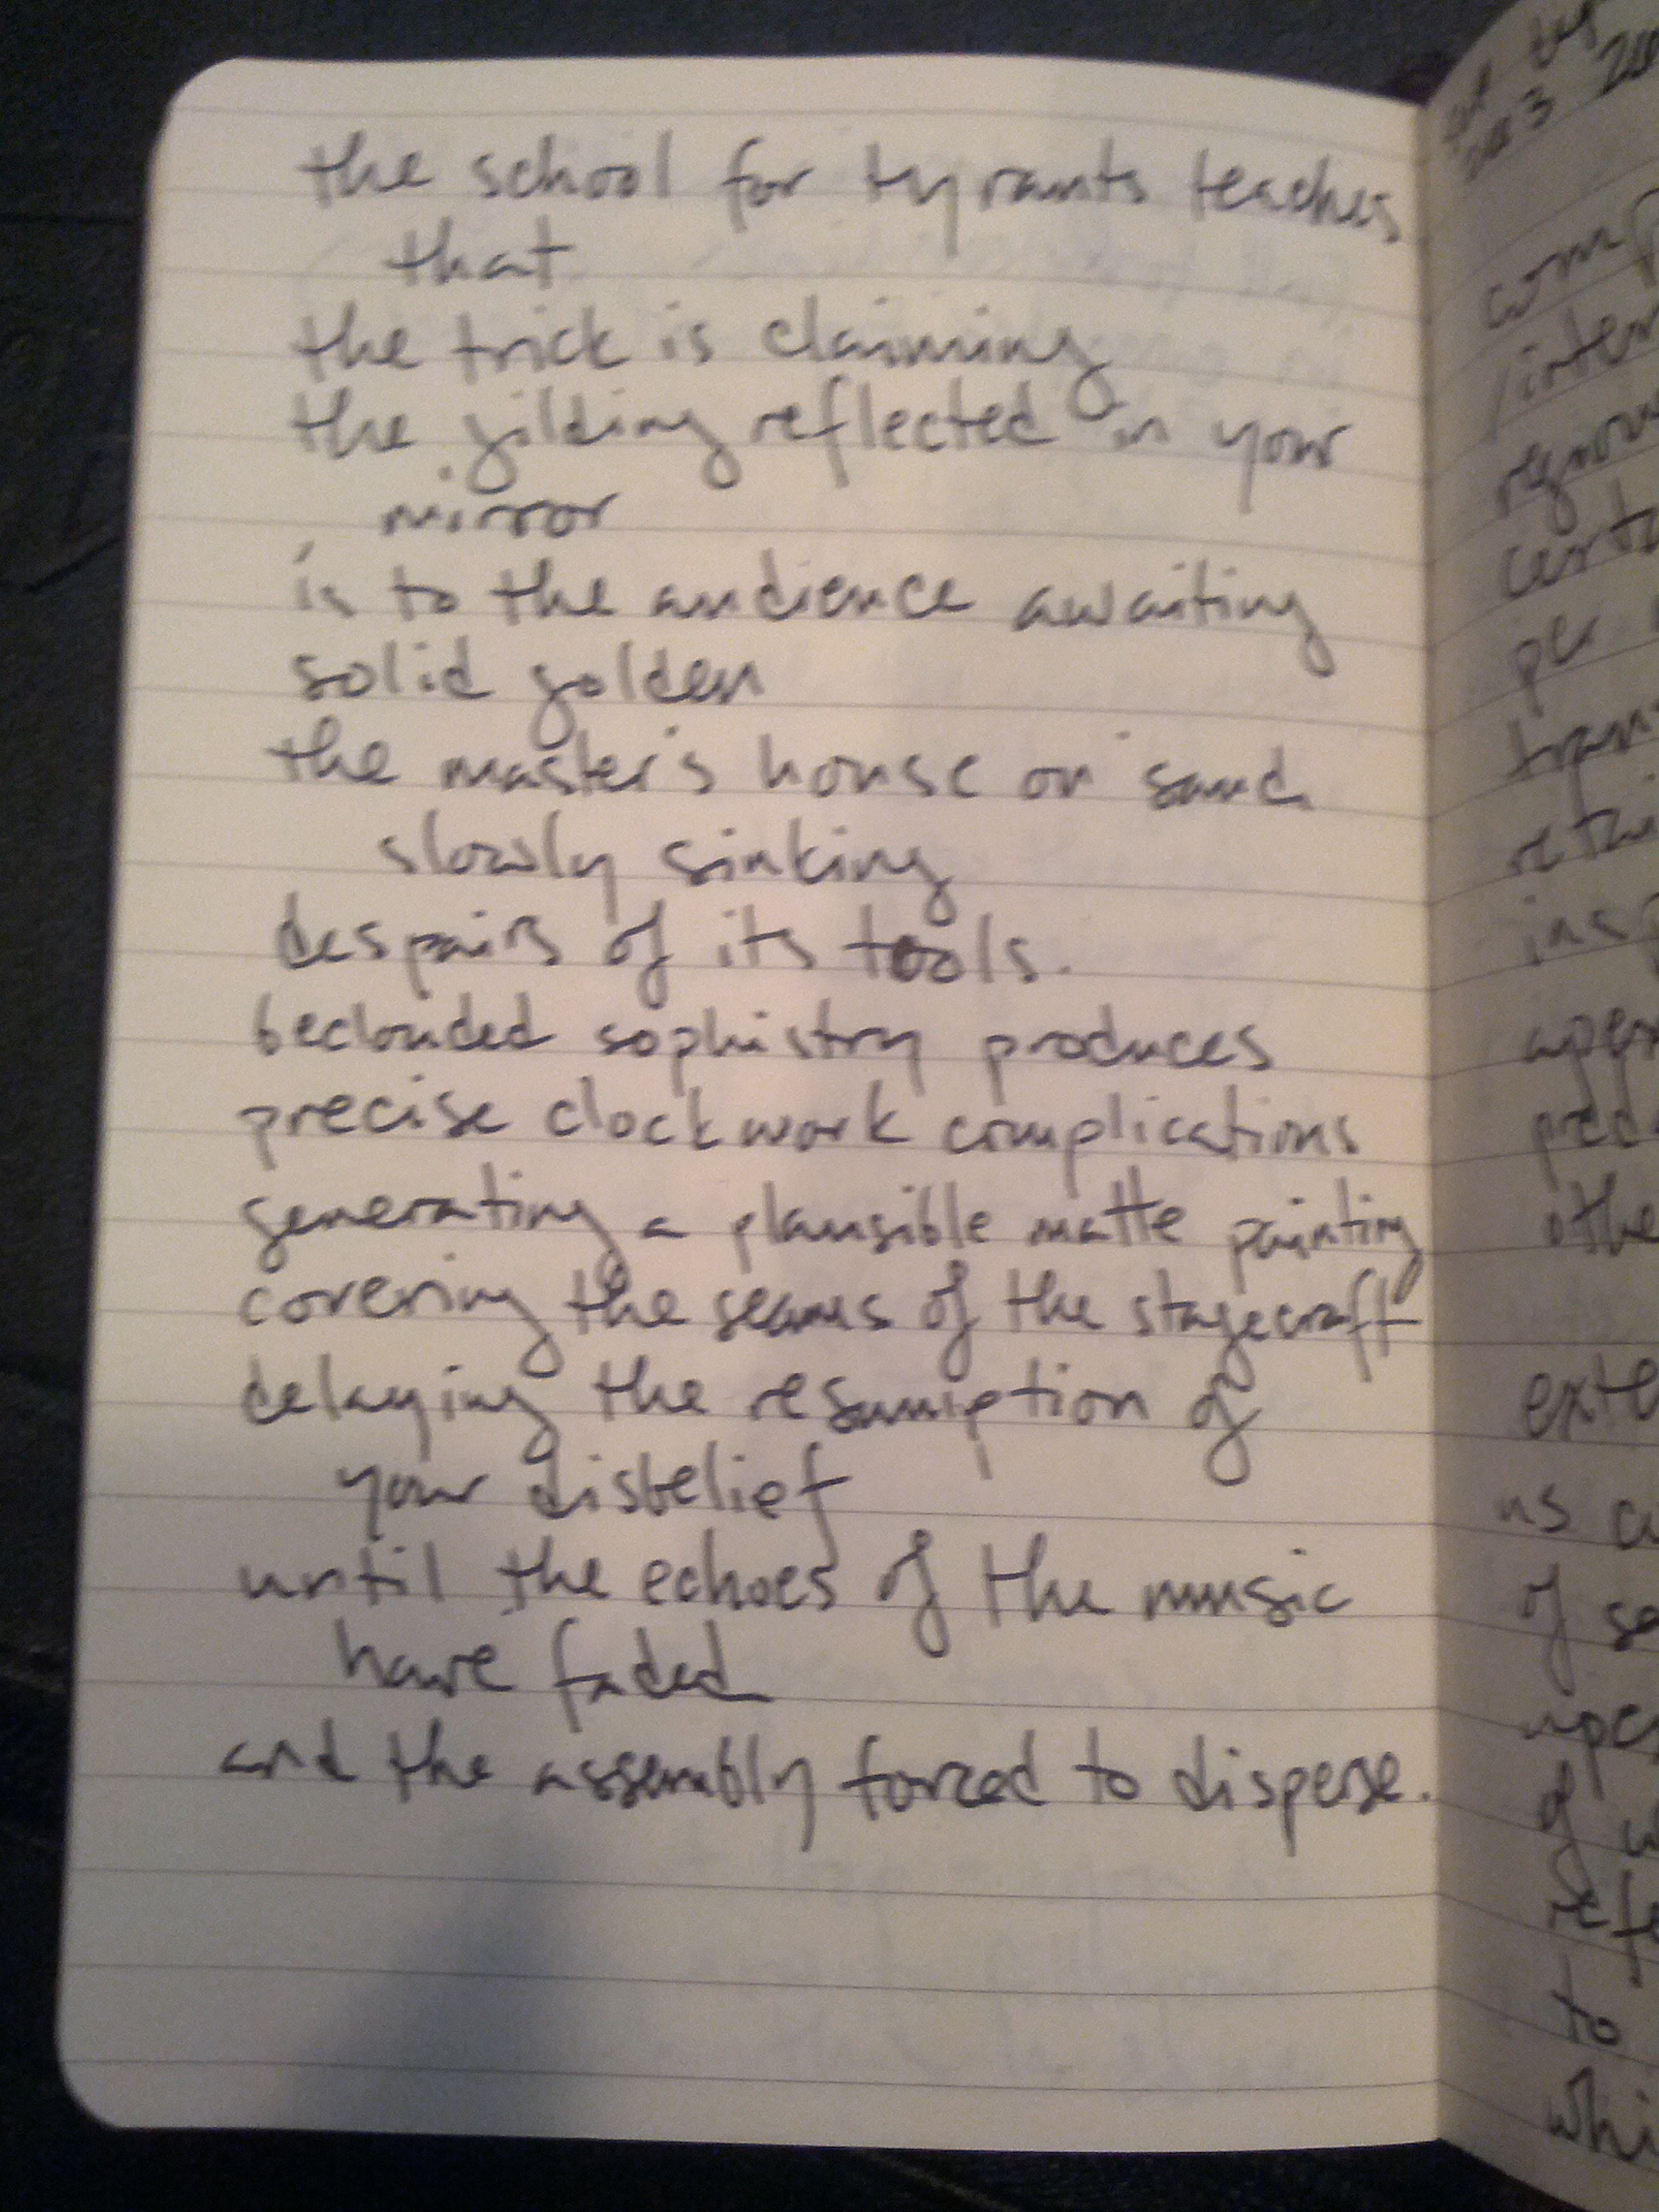 the school for tyrants teaches
that
the trick is claiming
the gilding reflected in your
mirror
is to the audience awaiting
solid golden
the master's house on sand
slowly sinking
despairs of its tools.
beclouded sophistry produces
precise clockwork complications
generating a plausible matte painting
covering the seams of the stagecraft
delaying the resumption of
your disbelief
until the echoes of the music
have faded
and the assembly forced to disperse.
per
to
of
us